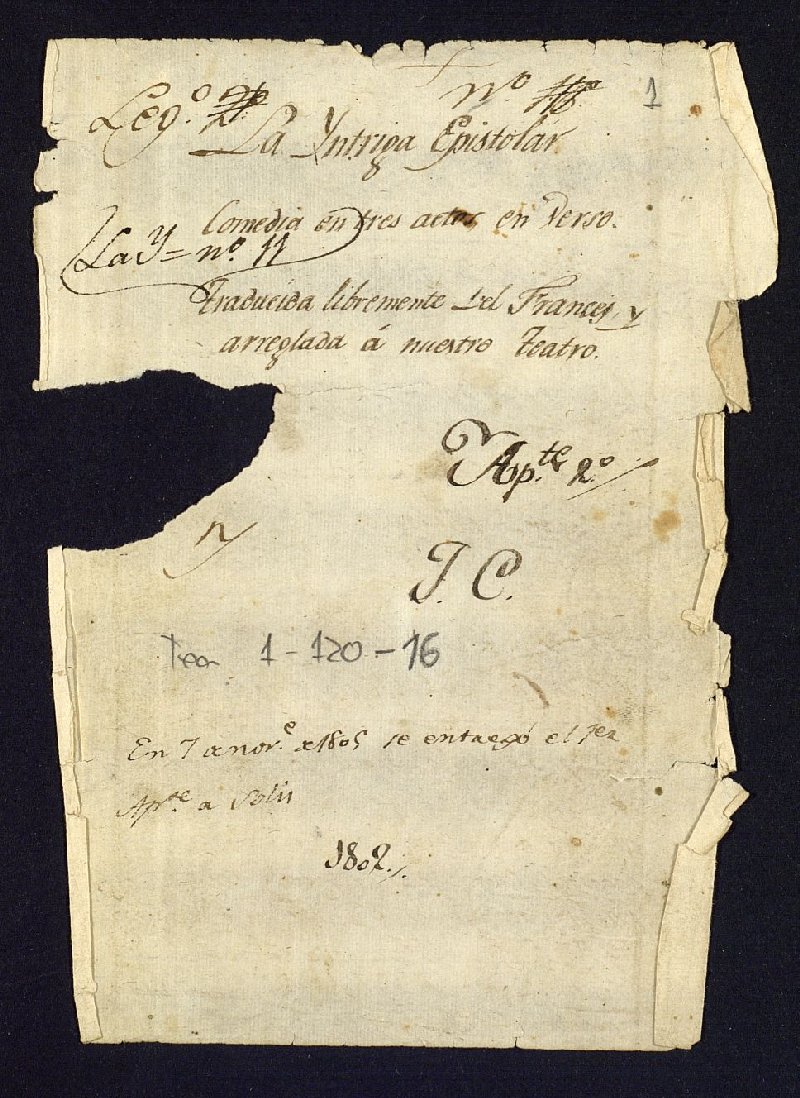 Leg.º
nº
1
La Yntriga Epistolar
Comedia en tres actos en Verso.
La Y= nº 11
Traducida libremente del Frances, y
arreglada á nuestro teatro.
Ap.te 2º
J. C.
Tea 1-120-16
En 7 de nov.e de 1805 se entregó el 1er
Ap.te a Solis
1802.